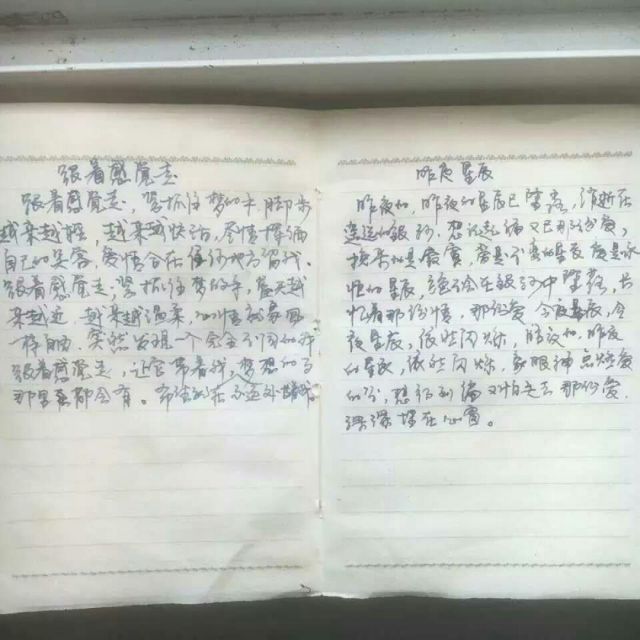 跟着感觉走
跟着感觉走，紧抓住梦的手，脚步
越来越轻，越来越快活，尽情挥洒
自己的笑容，爱情会在任何地方留我。
跟着感觉走，紧抓住梦的手，蓝天越
来越近，越来越温柔，心情就象风
一样自由，突然发现一个完全不同的我
跟着感觉走，让它带着我，梦想的事
那里都会有。希望就在不远处等我
昨夜星辰
昨夜的，昨夜的星辰已坠落，消逝在
遥远的银河，想记起偏又已忘，
换来的是寂寞，爱是不变的星辰爱是永
恒的星辰，绝不会在银河中坠落，长
忆着那份情，那份爱，今夜星辰，今
夜星辰，依然闪烁，昨夜的，昨夜
的星辰，依然闪烁，
想得到偏又怕失去 那份爱，
深深埋在心窝。